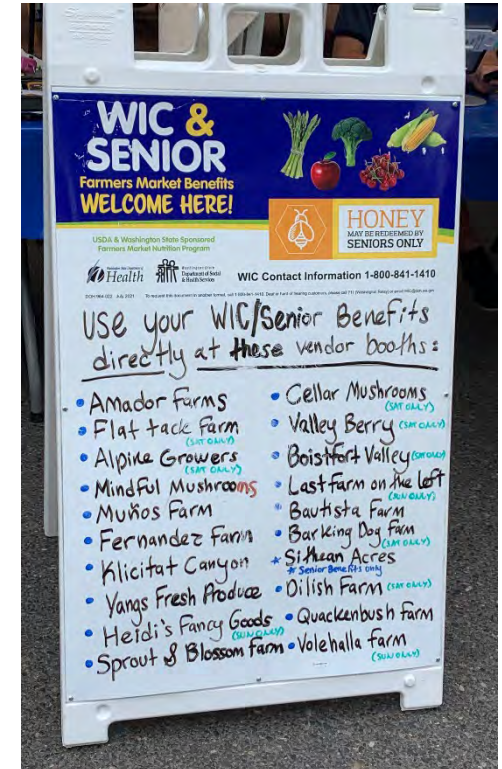 WIC &
SENIOR
Farmers Market Benefits
WELCOME HERE!
HONEY
MAY BE REDEEMED BY
SENIORS ONLY
USDA & Washington State Sponsored
Farmers Market Nutrition Program
Health
Washington State
Department of Social
& Health Services
WIC Contact Information 1-800-841-1410
USE your WIC/Senior Benefits
directly at these vendor booths:
• Amador Farms
• Flat tack Farm
(SAT ONLY)
• Alpine Growers
(SAT ONLY)
• Mindful Mushrooms
• Muños Farm
• Fernandez Farm
• Klicitat Canyon
• Yangs Fresh Produce
• Heidi's Fancy Goods
(SUN ONLY)
• Sprout & Blossom Farm
• Cellar Mushrooms
(SAT ONLY)
• Valley Berry (SAT ONLY)
• Boistfort Valley (SAT ONLY)
• Last farm on the left
(SUN ONLY)
• Bautista Farm
• Barking Dog Farm
(SAT ONLY)
* Sithean Acres
* Senior Benefits only
• Dilish Farm (SAT ONLY)
• Quackenbush Farm
• Volehalla farm
(SUN ONLY)